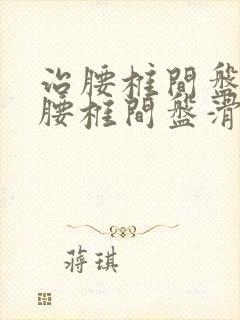 治腰柱間盤
腰椎間盤滑
蔣琪